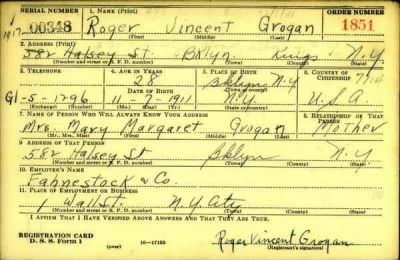 SERIAL NUMBER 1. Name (Print) ORDER NUMBER
00348 Roger Vincent Grogan 1851
(First) (Middle) (Last)
2. Address (Print)
582 Halsey St. Bklyn. Kings N.Y.
(Number and street or R. F. D. number) (Town) (County) (State)
3. Telephone 4. Age in Years 5. Place of Birth 6. Country of Citizenship
28 Bklyn N.Y.
Date of Birth (Town or county)
Gl-5-1296 11-7-1911 N.Y. U.S.A.
(Exchange) (Number) (Mo.) (Day) (Yr.) (State or country)
7. Name of Person Who Will Always Know Your Address 8. Relationship of That Person
Mrs. Mary Margaret Grogan Mother
(Mr., Mrs., Miss) (First) (Middle) (Last)
9. Address of That Person
582 Halsey St Bklyn N.Y.
(Number and street or R. F. D. number) (Town) (County) (State)
10. Employer's Name
Fahnestock & Co.
11. Place of Employment or Business
1 Wall St. N.Y. City
(Number and street or R. F. D. number) (Town) (County) (State)
I Affirm That I Have Verified Above Answers and That They Are True.
REGISTRATION CARD
D. S. S. Form 1 (over) 16-17105 Roger Vincent Grogan
(Registrant's signature)